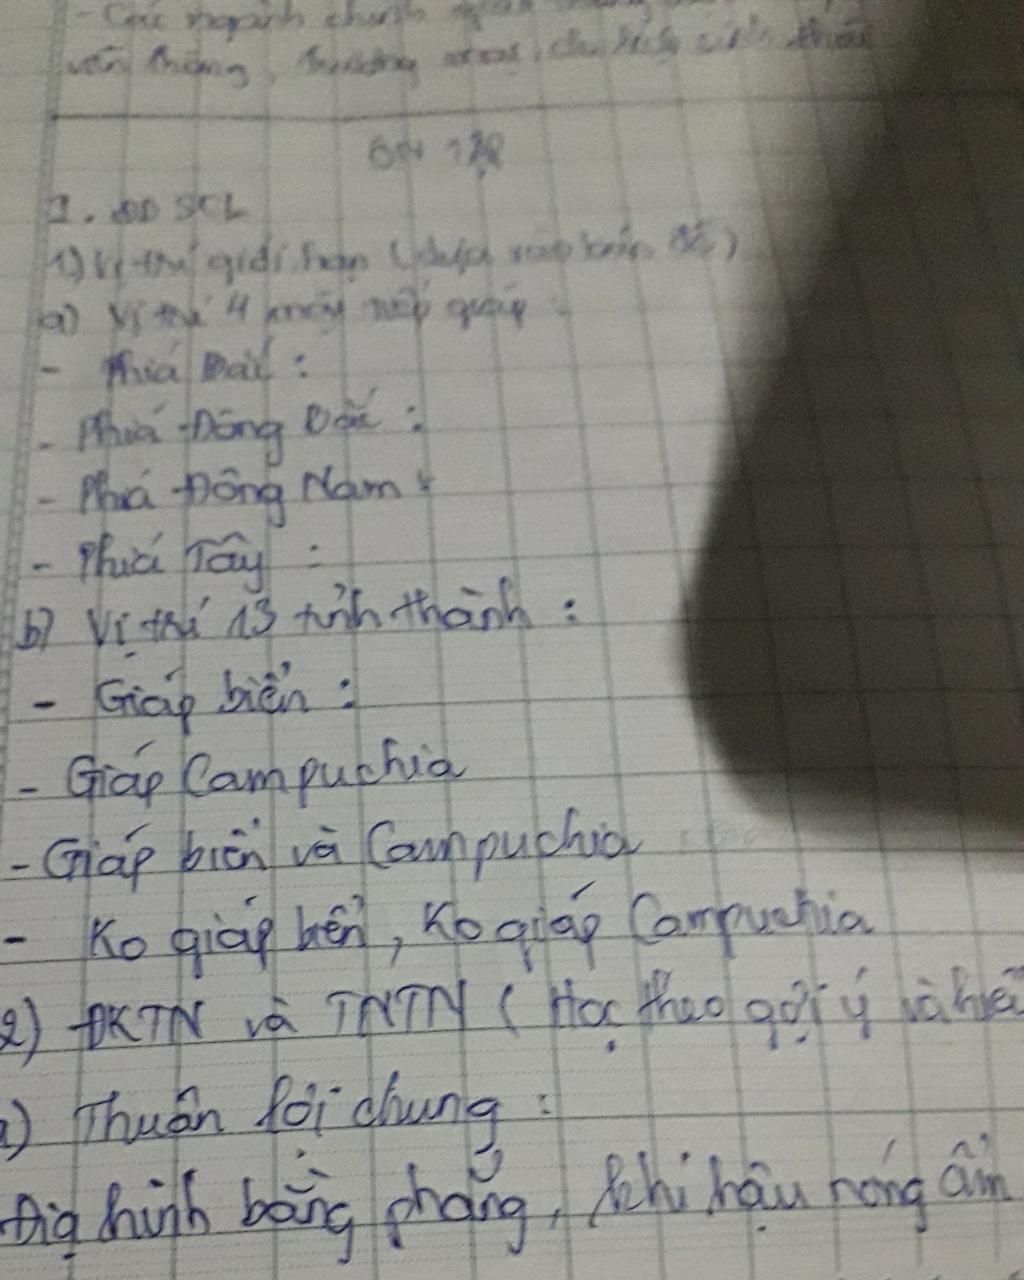 - Các ngành chính
viễn thông, thương mại, du lịch sinh thái
ÔN TẬP
I. ĐB SCL
1) Vị trí giới hạn (dựa vào bản đồ)
a) Vị trí 4 phía tiếp giáp :
- Phía Bắc :
- Phía Đông Bắc :
- Phía Đông Nam :
- Phía Tây :
b) Vị trí 13 tỉnh thành :
- Giáp biển :
- Giáp Campuchia
- Giáp biển và Campuchia
- Ko giáp biển, Ko giáp Campuchia
2) ĐKTN và TNTN ( Học theo gợi ý và
a) Thuận lợi chung :
Địa hình bằng phẳng, khí hậu nóng ẩm